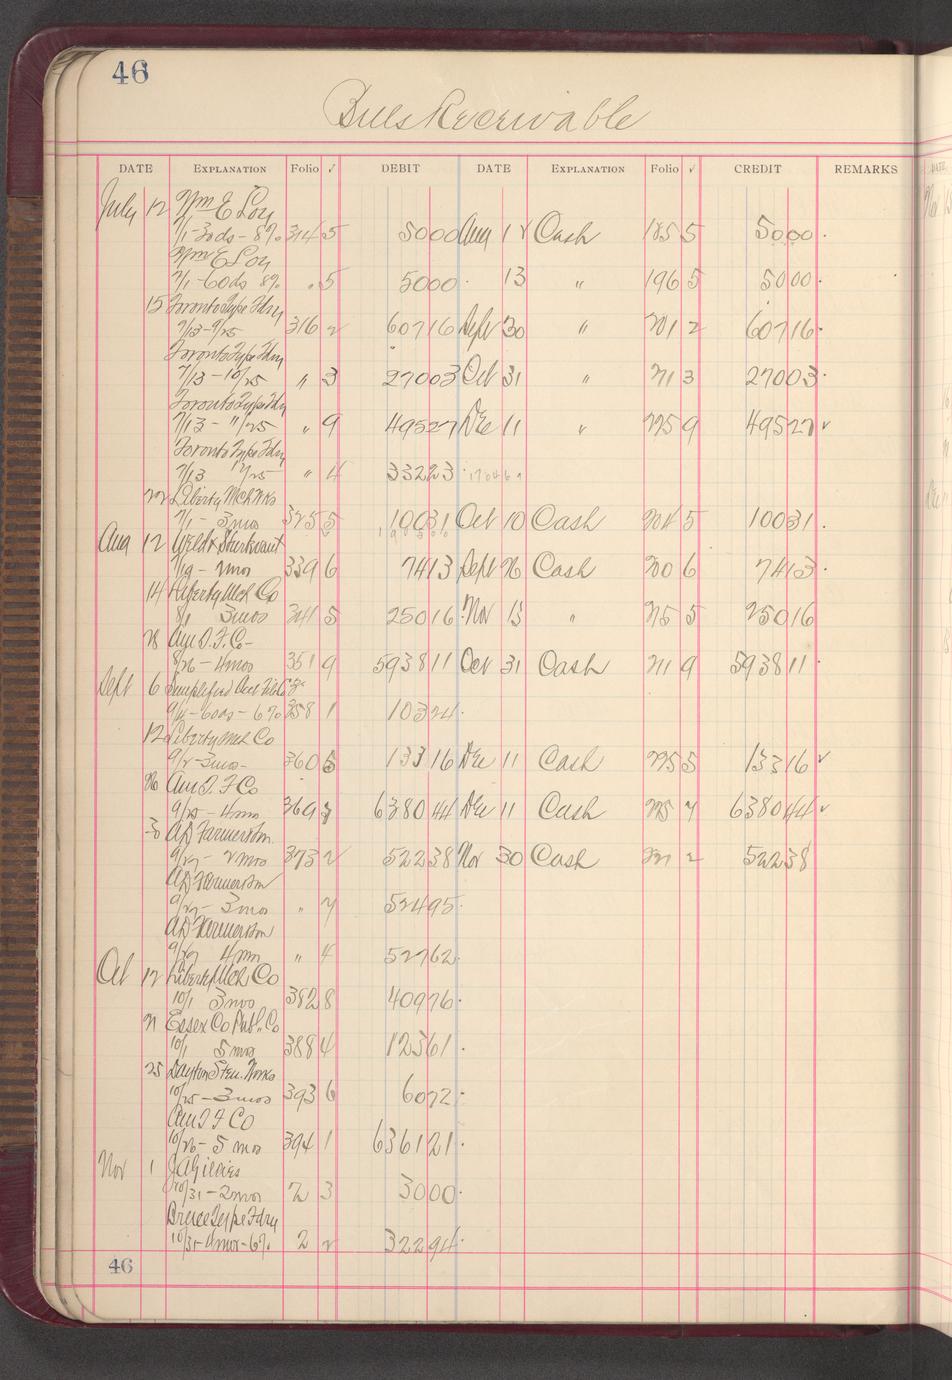 46
Bills Receivable
DATE EXPLANATION Folio √ DEBIT DATE EXPLANATION Folio √ CREDIT REMARKS
July 12 Wm E Loy
7/1-30ds-8% 314 5 5000 Aug 12 Cash 185 5 5000
Wm E Loy
7/1-60ds 8% " 5 5000 13 " 196 5 5000
15 Toronto Type Fdry
7/13-9/25 316 2 60716 Sept 30 " 201 2 60716
Toronto Type Fdry
7/13-10/25 " 3 27003 Oct 31 " 211 3 27003
Toronto Type Fdry
7/13-11/25 " 9 49527 Dec 11 " 225 9 49527 √
Toronto Type Fdry
7/13 12/25 " 4 33223
22 Liberty Mch Wks
7/1-3mos 325 5 10031 Oct 10 Cash 204 5 10031
Aug 12 Weld & Sturtevant
7/19-2mos 339 6 7413 Sept 26 Cash 200 6 7413
14 Liberty Mch Co
8/1 3mos 341 5 25016 Nov 13 " 215 5 25016
28 Am T. F. Co-
8/26-4mos 351 9 593811 Oct 31 Cash 211 9 593811
Sept 6 Simplified
9/4-60ds-6% 358 1 10324
12 Liberty Mch Co
9/2-3mos- 360 5 13316 Dec 11 Cash 225 5 13316 √
26 Am T. F Co
9/25-4mos 369 7 638044 Dec 11 Cash 225 7 638044 √
30 AD Farmer & Son
9/27-2mos 373 2 52238 Nov 30 Cash 221 2 52238
AD Farmer & Son
9/27-3mos " 7 52495
AD Farmer & Son
9/27 4mos " 4 52762
Oct 12 Liberty Mch Co
10/1 3mos 382 8 40976
21 Essex Co Pub. Co
10/1 5mos 388 4 12361
25 Dayton Sten. Works
10/25-3mos 393 6 6072
Am T F Co
10/26-5mos 394 1 636121
Nov 1 JA Gillies
10/31-2mos 2 3 3000
Bruce Type Fdry
10/31-4mos-6% 2 2 32294
46